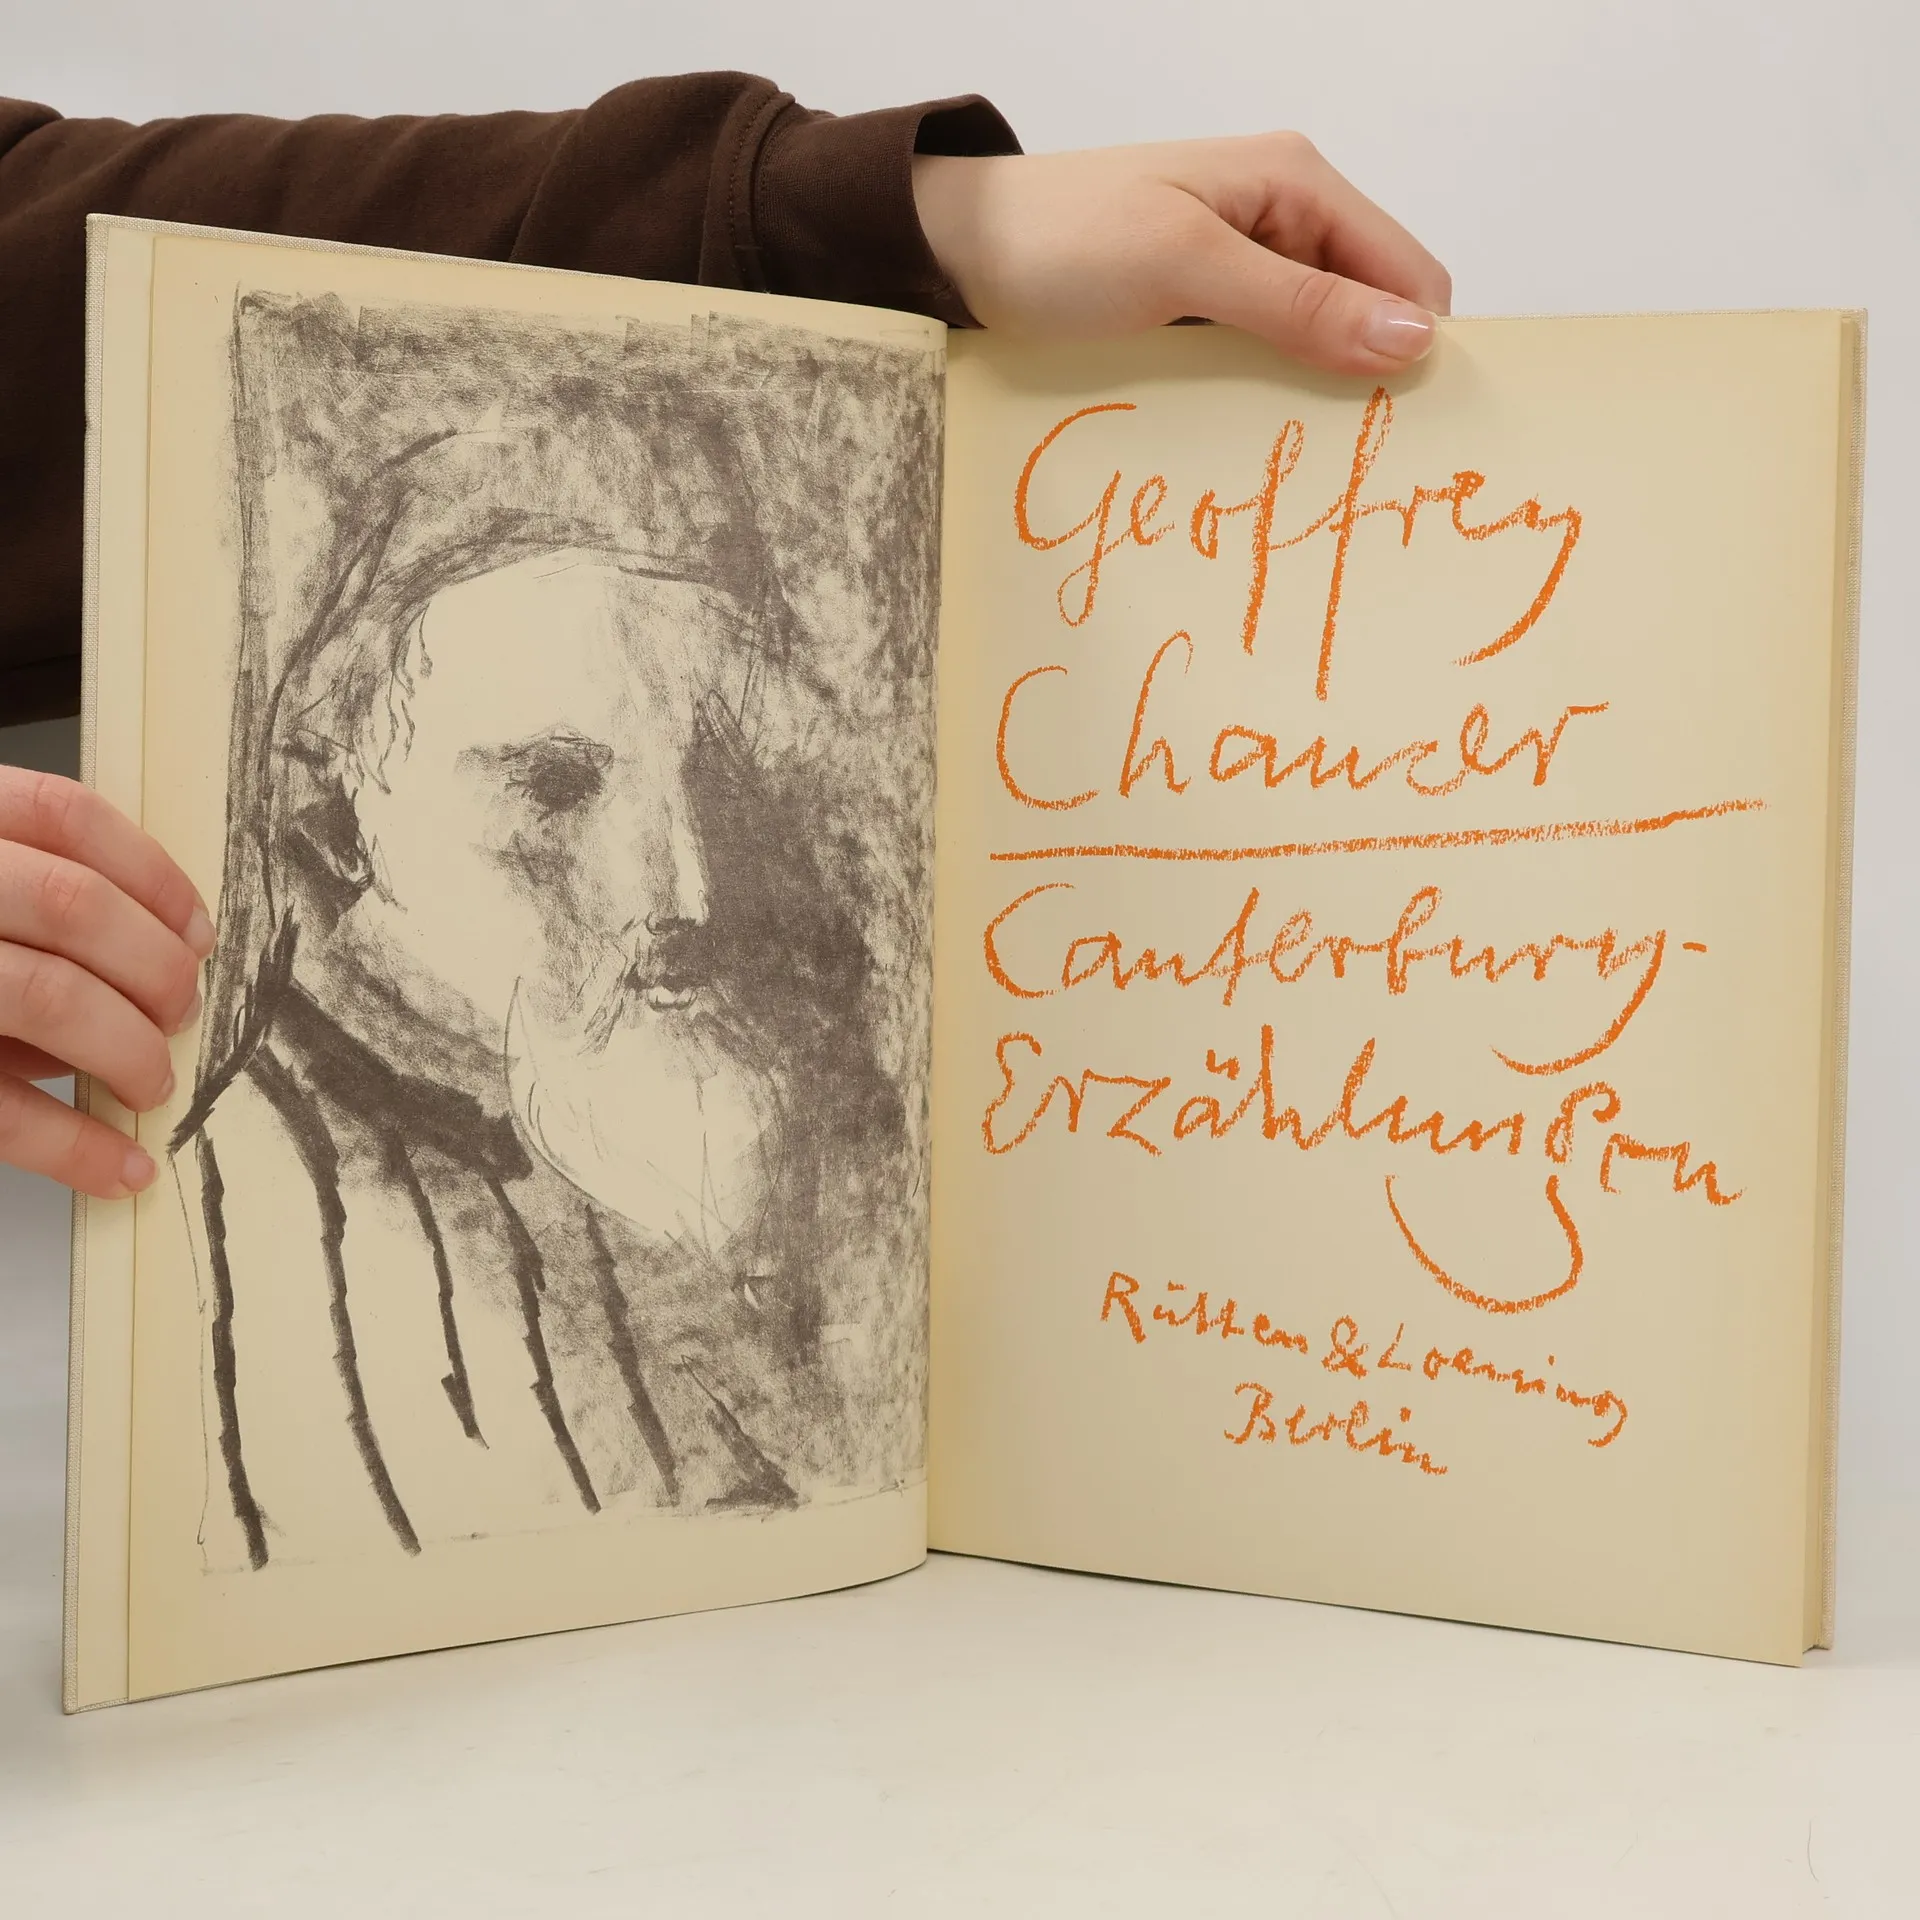 Geoffrey
Chaucer
Canterbury-
Erzählungen
Rütten & Loening
Berlin